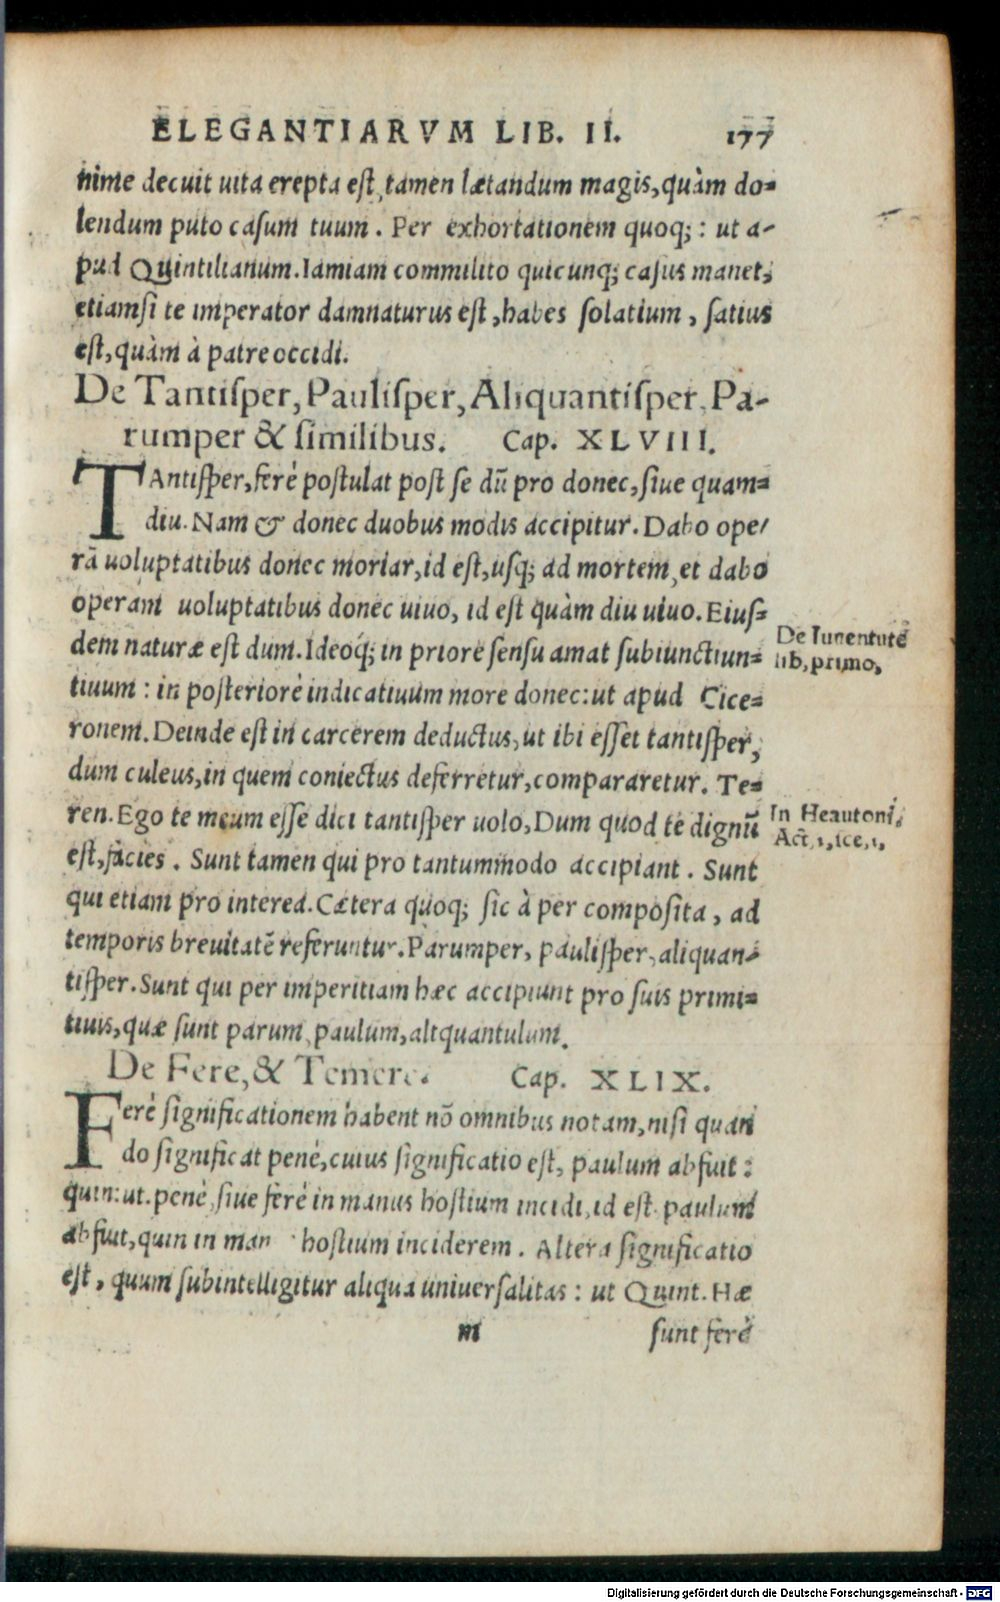 ELEGANTIARVM LIB. II. 177
nime decuit uita erepta est, tamen lætandum magis, quàm do-
lendum puto casum tuum. Per exhortationem quoq;: ut a-
pud Quintilianum. Iamiam commilito quicunq; casus manet,
etiamsi te imperator damnaturus est, habes solatium, satius
est, quàm à patre occidi.
De Tantisper, Paulisper, Aliquantisper, Pa-
rumper & similibus. Cap. XLVIII.
TAntisper, ferè postulat post se dũ pro donec, siue quam-
diu. Nam & donec duobus modis accipitur. Dabo ope/
rã uoluptatibus donec moriar, id est, usq; ad mortem, et dabo
operam uoluptatibus donec uiuo, id est quàm diu uiuo. Eius-
dem naturæ est dum. Ideoq́; in priore sensu amat subiunctiun-
tiuum: in posteriorè indicatiuum more donec: ut apud Cice-
ronem. Deinde est in carcerem deductus, ut ibi esset tantisper,
dum culeus, in quem coniectus deferretur, compararetur. Te-
ren. Ego te meum esse dici tantisper uolo, Dum quod te dignũ
est, facies. Sunt tamen qui pro tantummodo accipiant. Sunt
qui etiam pro interea. Cætera quoq; sic à per composita, ad
temporis breuitatẽ referuntur. Parumper, paulisper, aliquan-
tisper. Sunt qui per imperitiam hæc accipiunt pro suis primi-
tiuis, quæ sunt parum, paulum, altquantulum.
De Iuuentute
lib, primo,
In Heautoni,
Act, 1, sce, 1,
De Fere, & Temere. Cap. XLIX.
Ferè significationem habent nõ omnibus notam, nisi quan
do significat penè, cuius significatio est, paulum abfuit:
quin: ut. penè, siue ferè in manus hostium incidi, id est. paulum
abfuit, quin in man hostium inciderem. Altera significatio
est, quum subintelligitur aliqua uniuersalitas: ut Quint. Hæ
m sunt ferè
Digitalisierung gefördert durch die Deutsche Forschungsgemeinschaft - DFG